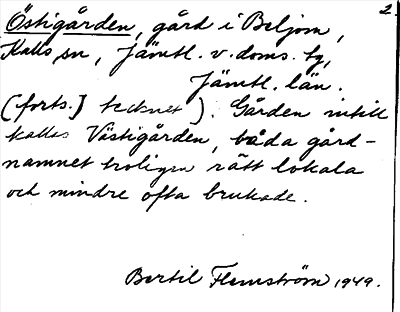 2.
Östigården, gård i Beljom,
Kalls sn, Jämtl. v. doms. tg,
Jämtl. län.
(forts.] tecknet). Gården intill
kallas Västigården, båda gård-
namnet troligen rätt lokala
och mindre ofta brukade.
Bertil Flemström 1949.